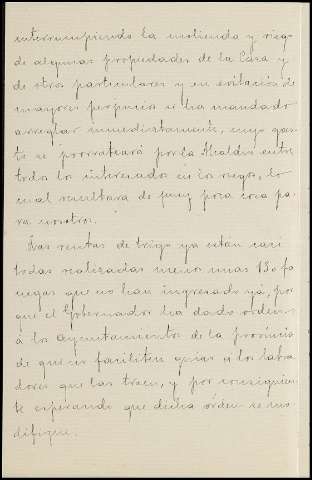 interrumpiendo la molienda y riego
de algunas propiedades de la Casa y
de otros particulares y en evitación de
mayores perjuicios se ha mandado
arreglar inmediatamente, cuyo gas-
to se prorrateará por la Alcaldía entre
todos los interesados en los riegos, lo
cual resultará de muy poca cosa pa-
ra nosotros.
Las rentas de trigo ya están casi
todas realizadas menos unas 130 fa-
negas que no han ingresado ya, por
que el Gobernador ha dado órdenes
á los ayuntamientos de la provincia
de que no faciliten guías a los labra-
dores que las traen, y por consiguien-
te esperando que dicha órden se mo-
difique.